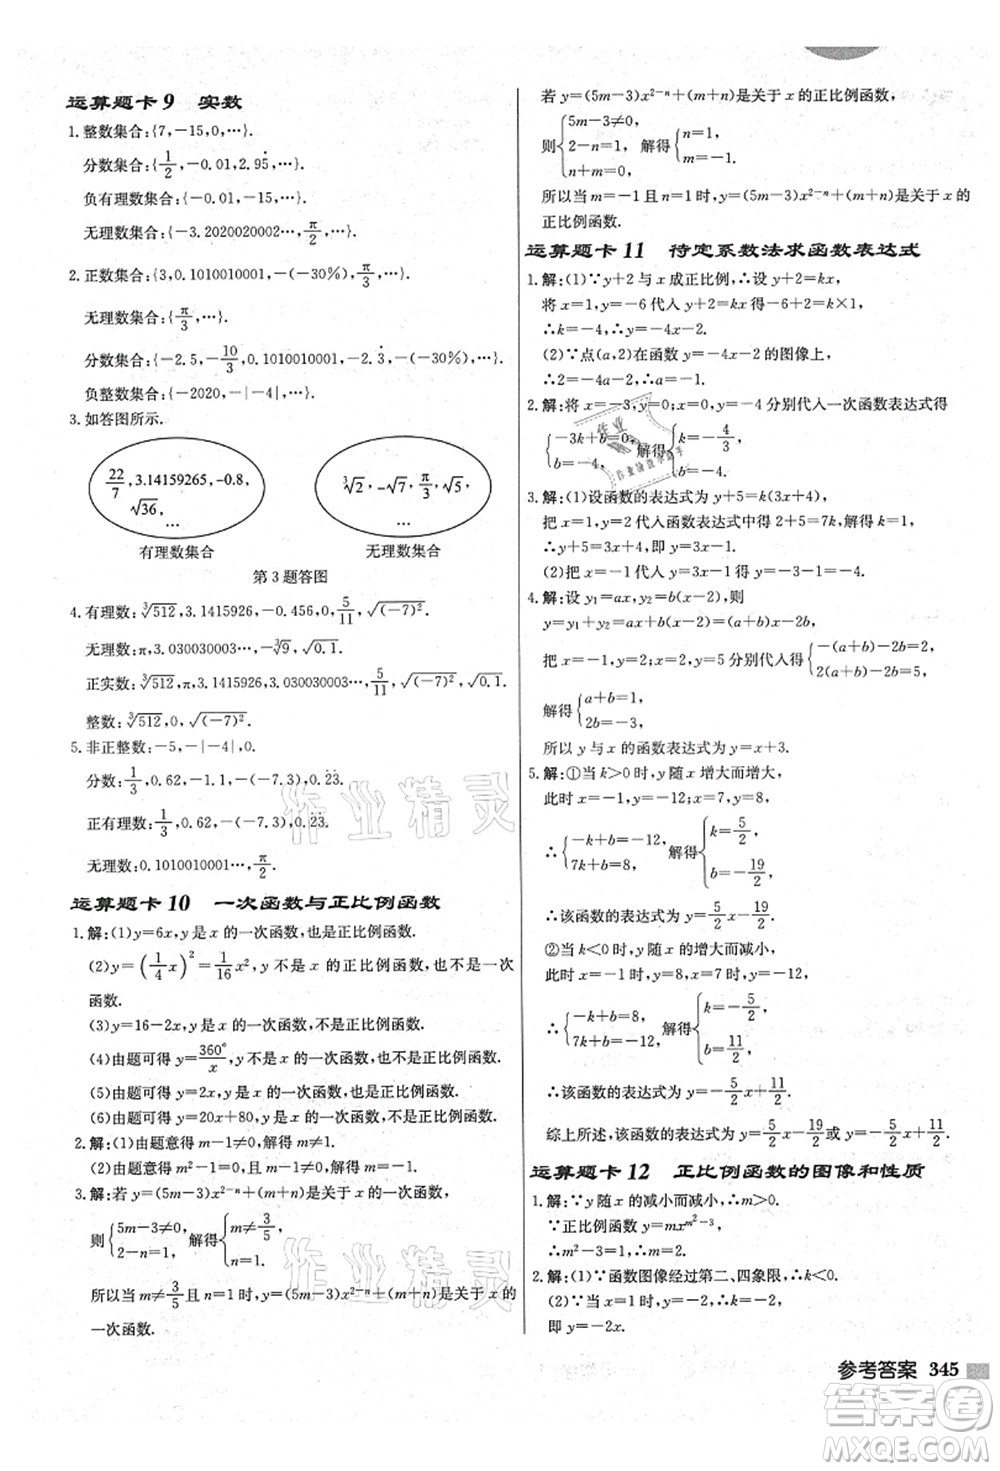 运算题卡 9 实数
1.整数集合:{7,-15,0,…}.
分数集合:{1/2,-0.01,2.95̇,…}.
负有理数集合:{-0.01,-15,…}.
无理数集合:{-3.2020020002…,π/2,…}.
2.正数集合:{3,0.1010010001,|-30%|,π/3,…}.
无理数集合:{π/3,…}.
分数集合:{-2.5,-10/3,0.1010010001,-2.3̇,-(-30%),…}.
负整数集合:{-2020,-|-4|,…}.
3.如答图所示.
22/7,3.14159265,-0.8,
√36,
…
有理数集合
∛2,-√7,π/3,√5,
…
无理数集合
第 3 题答图
4.有理数:∛512,3.1415926,-0.456,0,5/11,√(-7)².
无理数:π,3.030030003…,-∛9,√0.1.
正实数:∛512,π,3.1415926,3.030030003…,5/11,√(-7)²,√0.1.
整数:∛512,0,√(-7)².
5.非正整数:-5,-|-4|,0.
分数:1/3,0.62,-1.1,-6.4,0.2̇3̇.
正有理数:1/3,0.62,0.2̇3̇.
无理数:0.1010010001…,π/2.
运算题卡 10 一次函数与正比例函数
1.解:(1)y=6x,y 是 x 的一次函数,也是正比例函数.
(2)y=(1/4x)²=1/16x²,y 不是 x 的正比例函数,也不是一次
函数.
(3)y=16-2x,y 是 x 的一次函数,但不是正比例函数.
(4)由题可得 y=360°/x,y 不是 x 的一次函数,也不是正比例函数.
(5)由题可得 y=2x,y 是 x 的一次函数,也是正比例函数.
(6)由题可得 y=20x+80,y 是 x 的一次函数,但不是正比例函数.
2.解:(1)由题意得 m-1≠0,解得 m≠1.
(2)由题意得 m-1≠0,且 m+1=0,解得 m=-1.
3.解:若 y=(5m-3)x²⁻ⁿ+(m+n)是关于 x 的一次函数,
则{5m-3≠0, 2-n=1, 解得{m≠3/5, n=1.
所以当 m≠3/5且 n=1 时,y=(5m-3)x²⁻ⁿ+(m+n)是关于 x 的
一次函数.
若 y=(5m-3)x²⁻ⁿ+(m+n)是关于 x 的正比例函数,
则{5m-3≠0, 2-n=1, m+n=0, 解得{n=1, m=-1.
所以当 m=-1 且 n=1 时,y=(5m-3)x²⁻ⁿ+(m+n)是关于 x 的
正比例函数.
运算题卡 11 待定系数法求函数表达式
1.解:(1)∵y+2 与 x 成正比例,∴设 y+2=kx,
将 x=1,y=-6 代入 y+2=kx 得-6+2=k×1,
∴k=-4,∴y=-4x-2.
(2)∵点(a,2)在函数 y=-4x-2 的图像上,
∴2=-4a-2,∴a=-1.
2.解:将 x=-3,y=0;x=0,y=-4 分别代入一次函数表达式得
{-3k+b=0, b=-4, 解得{k=-4/3, b=-4.
3.解:(1)设函数的表达式为 y+5=k(3x+4),
把 x=1,y=2 代入函数表达式中得 2+5=7k,解得 k=1,
∴y+5=3x+4,即 y=3x-1.
(2)把 x=-1 代入得 y=-3-1=-4.
4.解:设 y₁=ax,y₂=b(x-2),则
y=y₁+y₂=ax+b(x-2)=(a+b)x-2b,
把 x=-1,y=2;x=2,y=5 分别代入得{-(a+b)-2b=2, 2(a+b)-2b=5,
解得{a+b=1, 2b=-3.
所以 y 与 x 的函数表达式为 y=x+3.
5.解:①当 k>0 时,y 随 x 增大而增大,
此时 x=-1,y=-12,x=7,y=8,
∴{-k+b=-12, 7k+b=8, 解得{k=5/2, b=-19/2.
∴该函数的表达式为 y=5/2x-19/2.
②当 k<0 时,y 随 x 的增大而减小,
此时 x=-1 时,y=8,x=7 时,y=-12,
∴{-k+b=8, 7k+b=-12, 解得{k=-5/2, b=11/2.
∴该函数的表达式为 y=-5/2x+11/2.
综上所述,该函数的表达式为 y=5/2x-19/2或 y=-5/2x+11/2.
运算题卡 12 正比例函数的图像和性质
1.解:∵y 随 x 的减小而减小,∴m>0.
∵正比例函数 y=mx^(m²-3),
∴m²-3=1,∴m=2.
2.解:(1)∵函数图像经过第二、四象限,∴k<0.
(2)∵当 x=1 时,y=-2,∴k=-2,
即 y=-2x.
参考答案 345
作业精灵
作业精灵
答案圈
MXQE.COM